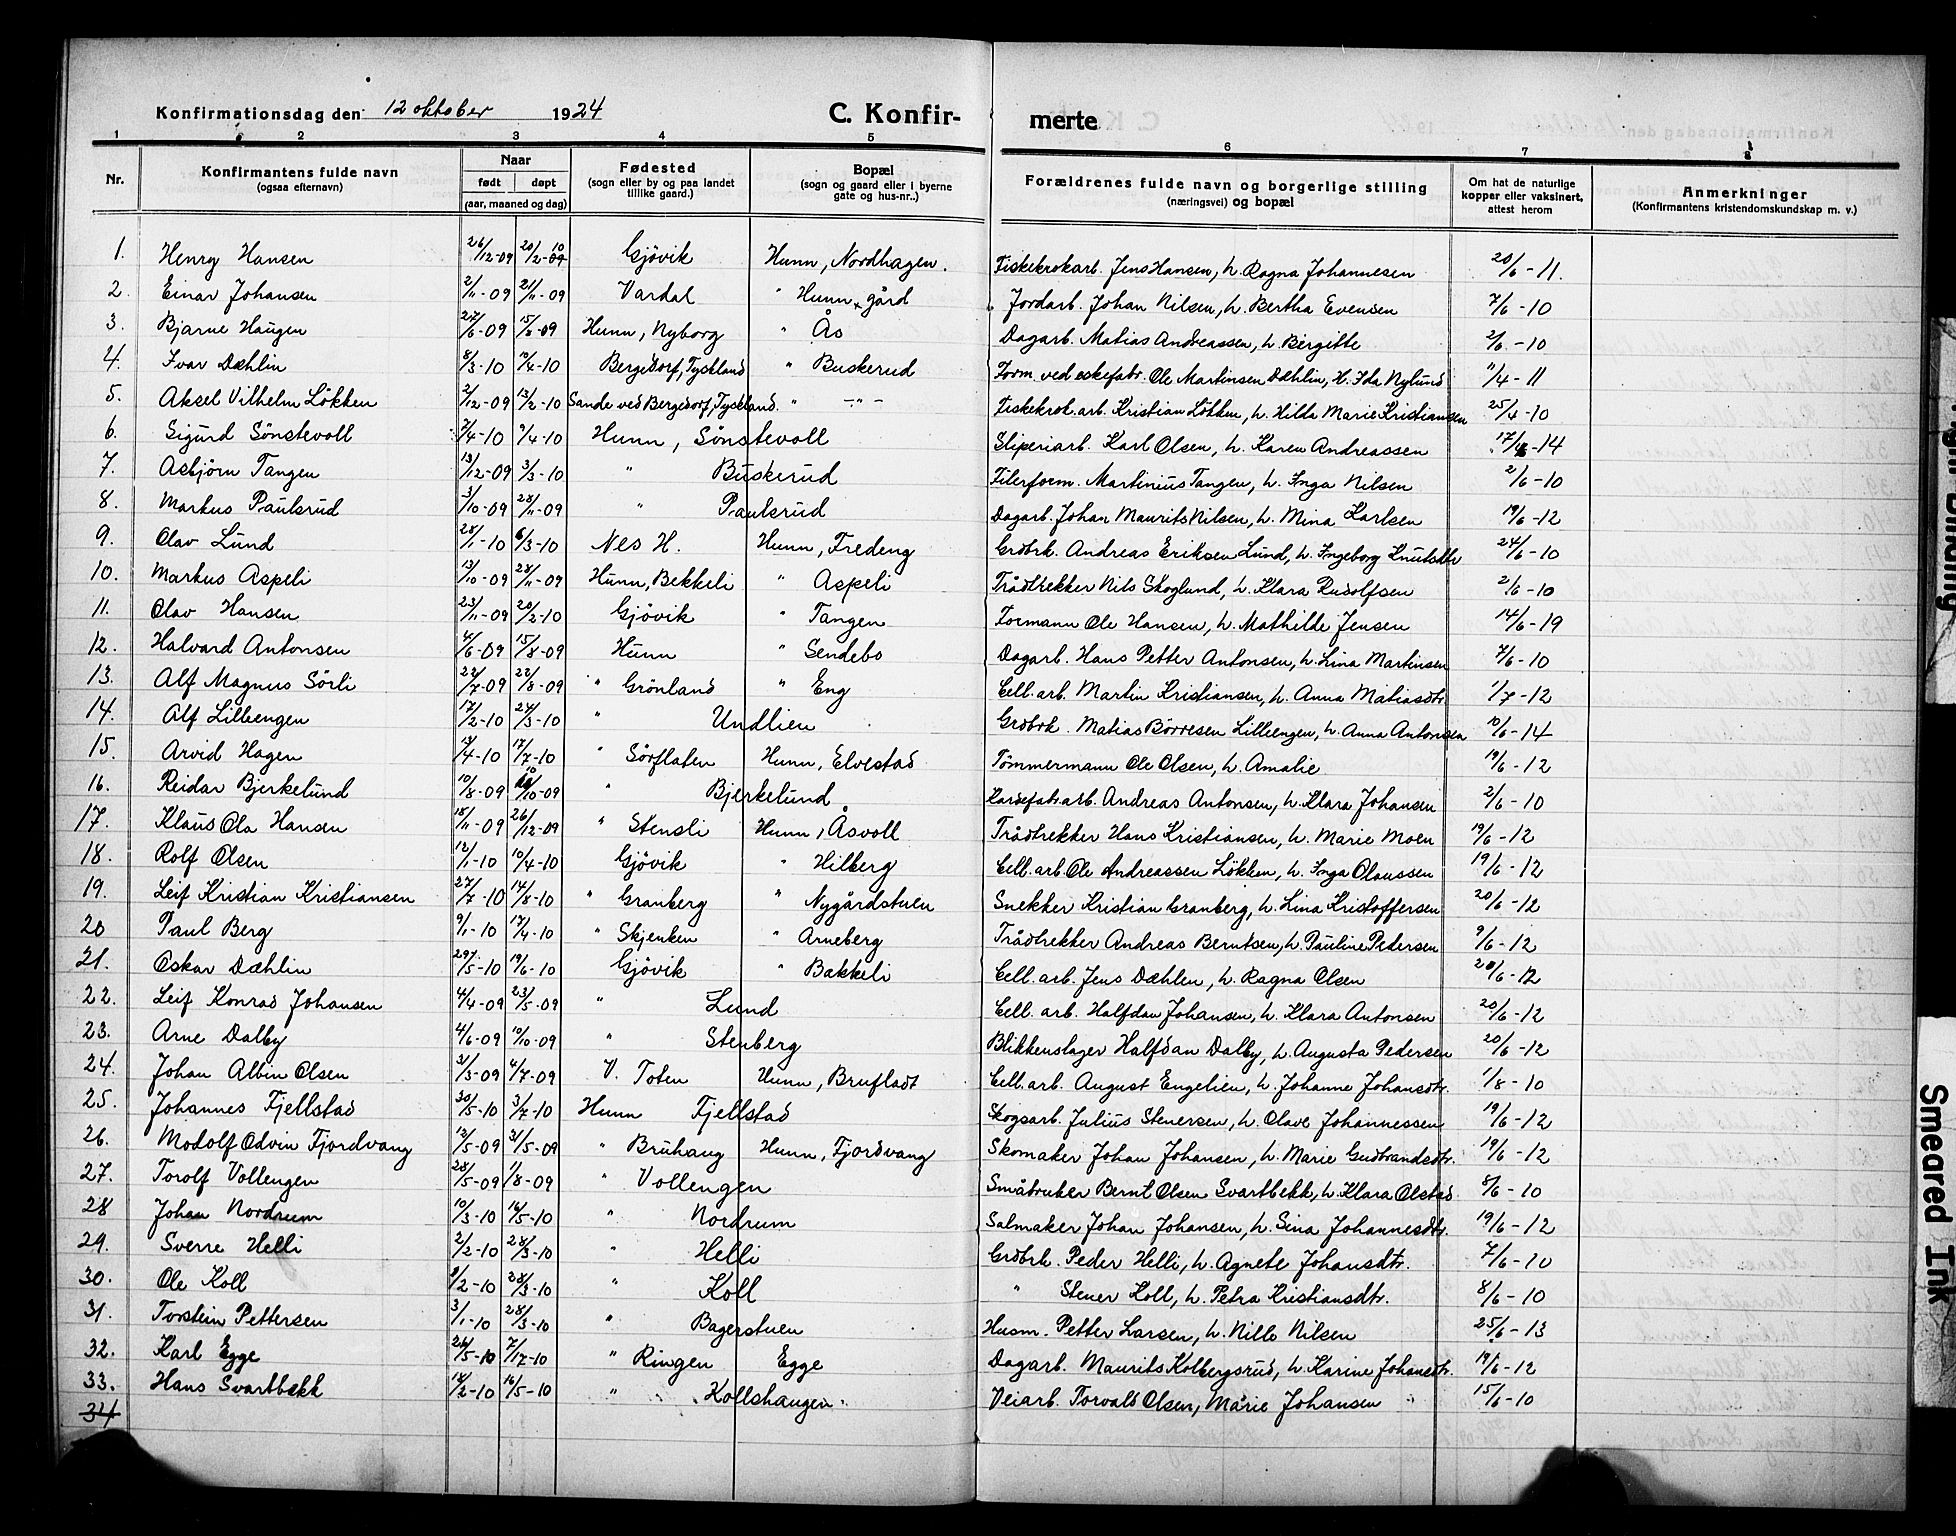 Konfirmationsdag den 12 oktober 1924 C. Konfir- merte
1 2 3 4 5 6 7 8
Nr. Konfirmantens fulde navn (ogsaa efternavn) Naar født døpt (aar, maaned og dag) Fødested (sogn eller by og paa landet tillike gaard.) Bopæl (sogn og gaard eller i byerne gate og hus-nr..) Forældrenes fulde navn og borgerlige stilling (næringsvei) og bopæl Om hat de naturlige kopper eller vaksinert, attest herom Anmerkninger (Konfirmantens kristendomskundskap m. v.)
1. Henry Hansen 26/12-09 20/2-09 10 Gjövik Hunn, Nordhagen. Fiskekrokarb. Jens Hansen, h. Ragna Johannesen 20/6-11.
2. Einar Johansen 2/11-09 21/11-09 Vardal " Hunn gård Jordarb. Johan Nilsen, h. Bertha Evensen 7/6-10
3. Bjarne Haugen 27/6-09 15/8-09 Hunn, Nyborg " Ås Dagarb. Matias Andreassen, h. Birgitte 2/6-10
4. Ivar Dæhlin 8/3-10 10/4-10 Bergedorf, Tyskland " Buskerud Form. ved eskefabr. Ole Martinsen Dæhlin, h. Ida Nylund 11/4-11
5. Aksel Vilhelm Lökken 2/12-09 13/2-10 Sande ved Bergedorf, Tyskland. " -"- Fiskekrok.arb. Kristian Lökken, h. Hilda Marie Kristiansen 25/4-10
6. Sigurd Sönstevoll 7/4-10 9/4-10 Hunn, Sönstevoll Sliperiarb. Karl Olsen, h. Karen Andreassen 17/6-14
7. Asbjörn Tangen 13/12-09 3/3-10 " Buskerud Filerform. Martinius Tangen, h. Inga Nilsen 2/6-10
8. Markus Paulsrud 3/10-09 28/11-09 " Paulsrud Dagarb. Johan Maurits Nilsen, h. Mina Karlsen 19/6-12
9. Olav Lund 28/1-10 6/3-10 Nes H. Hunn, Fredeng Grdbrk. Andreas Eriksen Lund, h. Ingeborg Knutsdtr 24/6-10
10. Markus Aspeli 13/10-09 28/11-09 Hunn, Bekkeli " Aspeli Trådtrekker Nils Skoglund, h. Klara Rudolfsen 2/6-10
11. Olav Hansen 23/11-09 20/2-10 Gjövik " Tangen Formann Ole Hansen, h. Mathilde Jensen 14/6-19
12. Halvard Antonsen 4/6-09 15/8-09 Hunn " Sendebo Dagarb. Hans Petter Antonsen, h. Lina Martinsen 7/6-10
13. Alf Magnus Sörli 22/7-09 22/8-09 " Grönland " Eng Cell.arb. Martin Kristiansen, h. Anna Matiasdtr. 1/7-12
14. Alf Lilleengen 17/2-10 24/3-10 " Undlien Grdbrk. Matias Börresen Lilleengen, h. Anna Antonsen 10/6-14
15. Arvid Hagen 13/4-10 17/7-10 " Sörflaten Hunn, Elvestad Tömmermann Ole Olsen, h. Amalie 19/6-12
16. Reidar Bjerkelund 10/8-09 10/10-09 " Bjerkelund Kardefabr.arb. Andreas Antonsen, h. Klara Johansen 2/6-10
17. Klaus Ola Hansen 18/11-09 26/12-09 " Stensli Hunn, Åsvoll Trådtrekker Hans Kristiansen, h. Marie Moen 19/6-12
18. Rolf Olsen 12/1-10 10/4-10 Gjövik " Hilberg Cell.arb. Ole Andreassen Lökken, h. Inga Olaussen 19/6-12
19. Leif Kristian Kristiansen 27/7-10 14/8-10 " Granberg " Nygårdstuen Snekker Kristian Granberg, h. Lina Kristoffersen 20/6-12
20 Paul Berg 9/1-10 17/4-10 " Skjenken " Arneberg Trådtrekker Andreas Berntsen, h. Pauline Pedersen 9/6-12
21. Oskar Dæhlin 29/5-10 19/6-10 Gjövik " Bakkeli Cell.arb. Jens Dæhlen, h. Ragna Olsen 20/6-12
22. Leif Konrad Johansen 4/4-09 23/5-09 " Lund Cell. arb. Halfdan Johansen, h. Klara Antonsen 20/6-12
23. Arne Dalby 4/6-09 10/10-09 " Stenberg Blikkenslager Halfdan Dalby, h. Augusta Pedersen 20/6-12
24. Johan Albin Olsen 31/3-09 4/7-09 V. Toten Hunn, Brufladt Cell.arb. August Engelien, h. Johanne Johansdtr. 1/8-10
25. Johannes Fjellstad 30/5-10 3/7-10 Hunn Fjellstad Skogsarb. Julius Stenersen, h. Olave Johannessen 19/6-12
26. Modolf Odvin Fjordvang 13/5-09 31/5-09 " Bruhaug Hunn, Fjordvang Skomaker Johan Johansen, h. Marie Gudbrandsdtr. 19/6-12
27. Torolf Vollengen 28/5-09 1/8-09 " Vollengen Småbruker Bernt Olsen Svartbekk, h. Klara Olstad 8/6-10
28 Johan Nordrum 10/3-10 16/5-10 " Nordrum Salmaker Johan Johansen, h. Sina Johannesdtr. 19/6-12
29. Sverre Helli 2/2-10 28/3-10 " Helli Grdbrk. Peder Helli, h. Agnete Johansdtr. 7/6-10
30. Ole Koll 2/2-10 28/3-10 " Koll " Stener Koll, h. Petra Kristiansdtr. 8/6-10
31. Torstein Pettersen 3/1-10 28/3-10 " Bagerstuen Husm. Petter Larsen, h. Nille Nilsen 25/6-13
32. Karl Egge 26/5-10 7/17-10 " Ringen Egge Dagarb. Maurits Kolbergsrud, h. Karine Johansdtr. 19/6-12
33. Hans Svartbekk 18/2-10 16/5-10 " Kollshaugen. Veiarb. Torvald Olsen, Marie Johansen 15/6-10
34
Binding
Smeared Ink